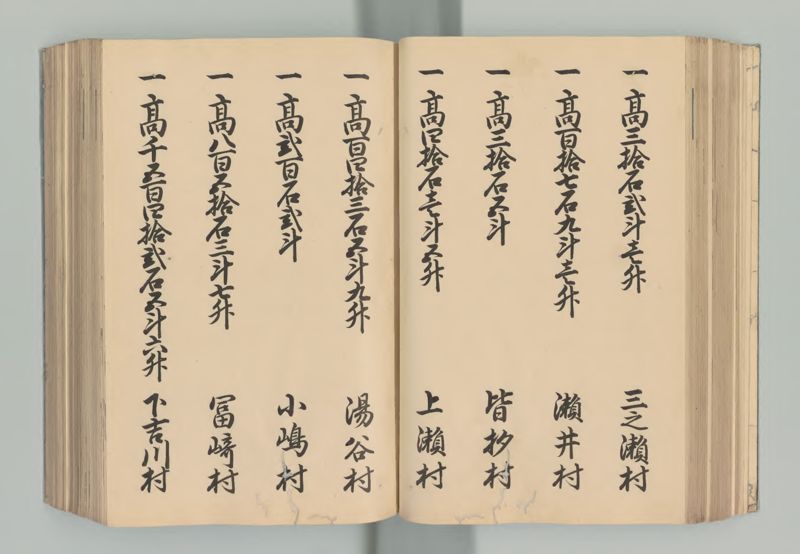 一高三拾石弐斗壱升 三之瀬村
一高百拾七石九斗壱升 瀬井村
一高三拾石五斗 皆杦村
一高四拾石壱斗五升 上瀬村
一高百四拾三石五斗九升 湯谷村
一高弐百石弐斗 小嶋村
一高八百五拾石三斗七升 冨﨑村
一高千五百四拾弐石五斗六升 下吉川村